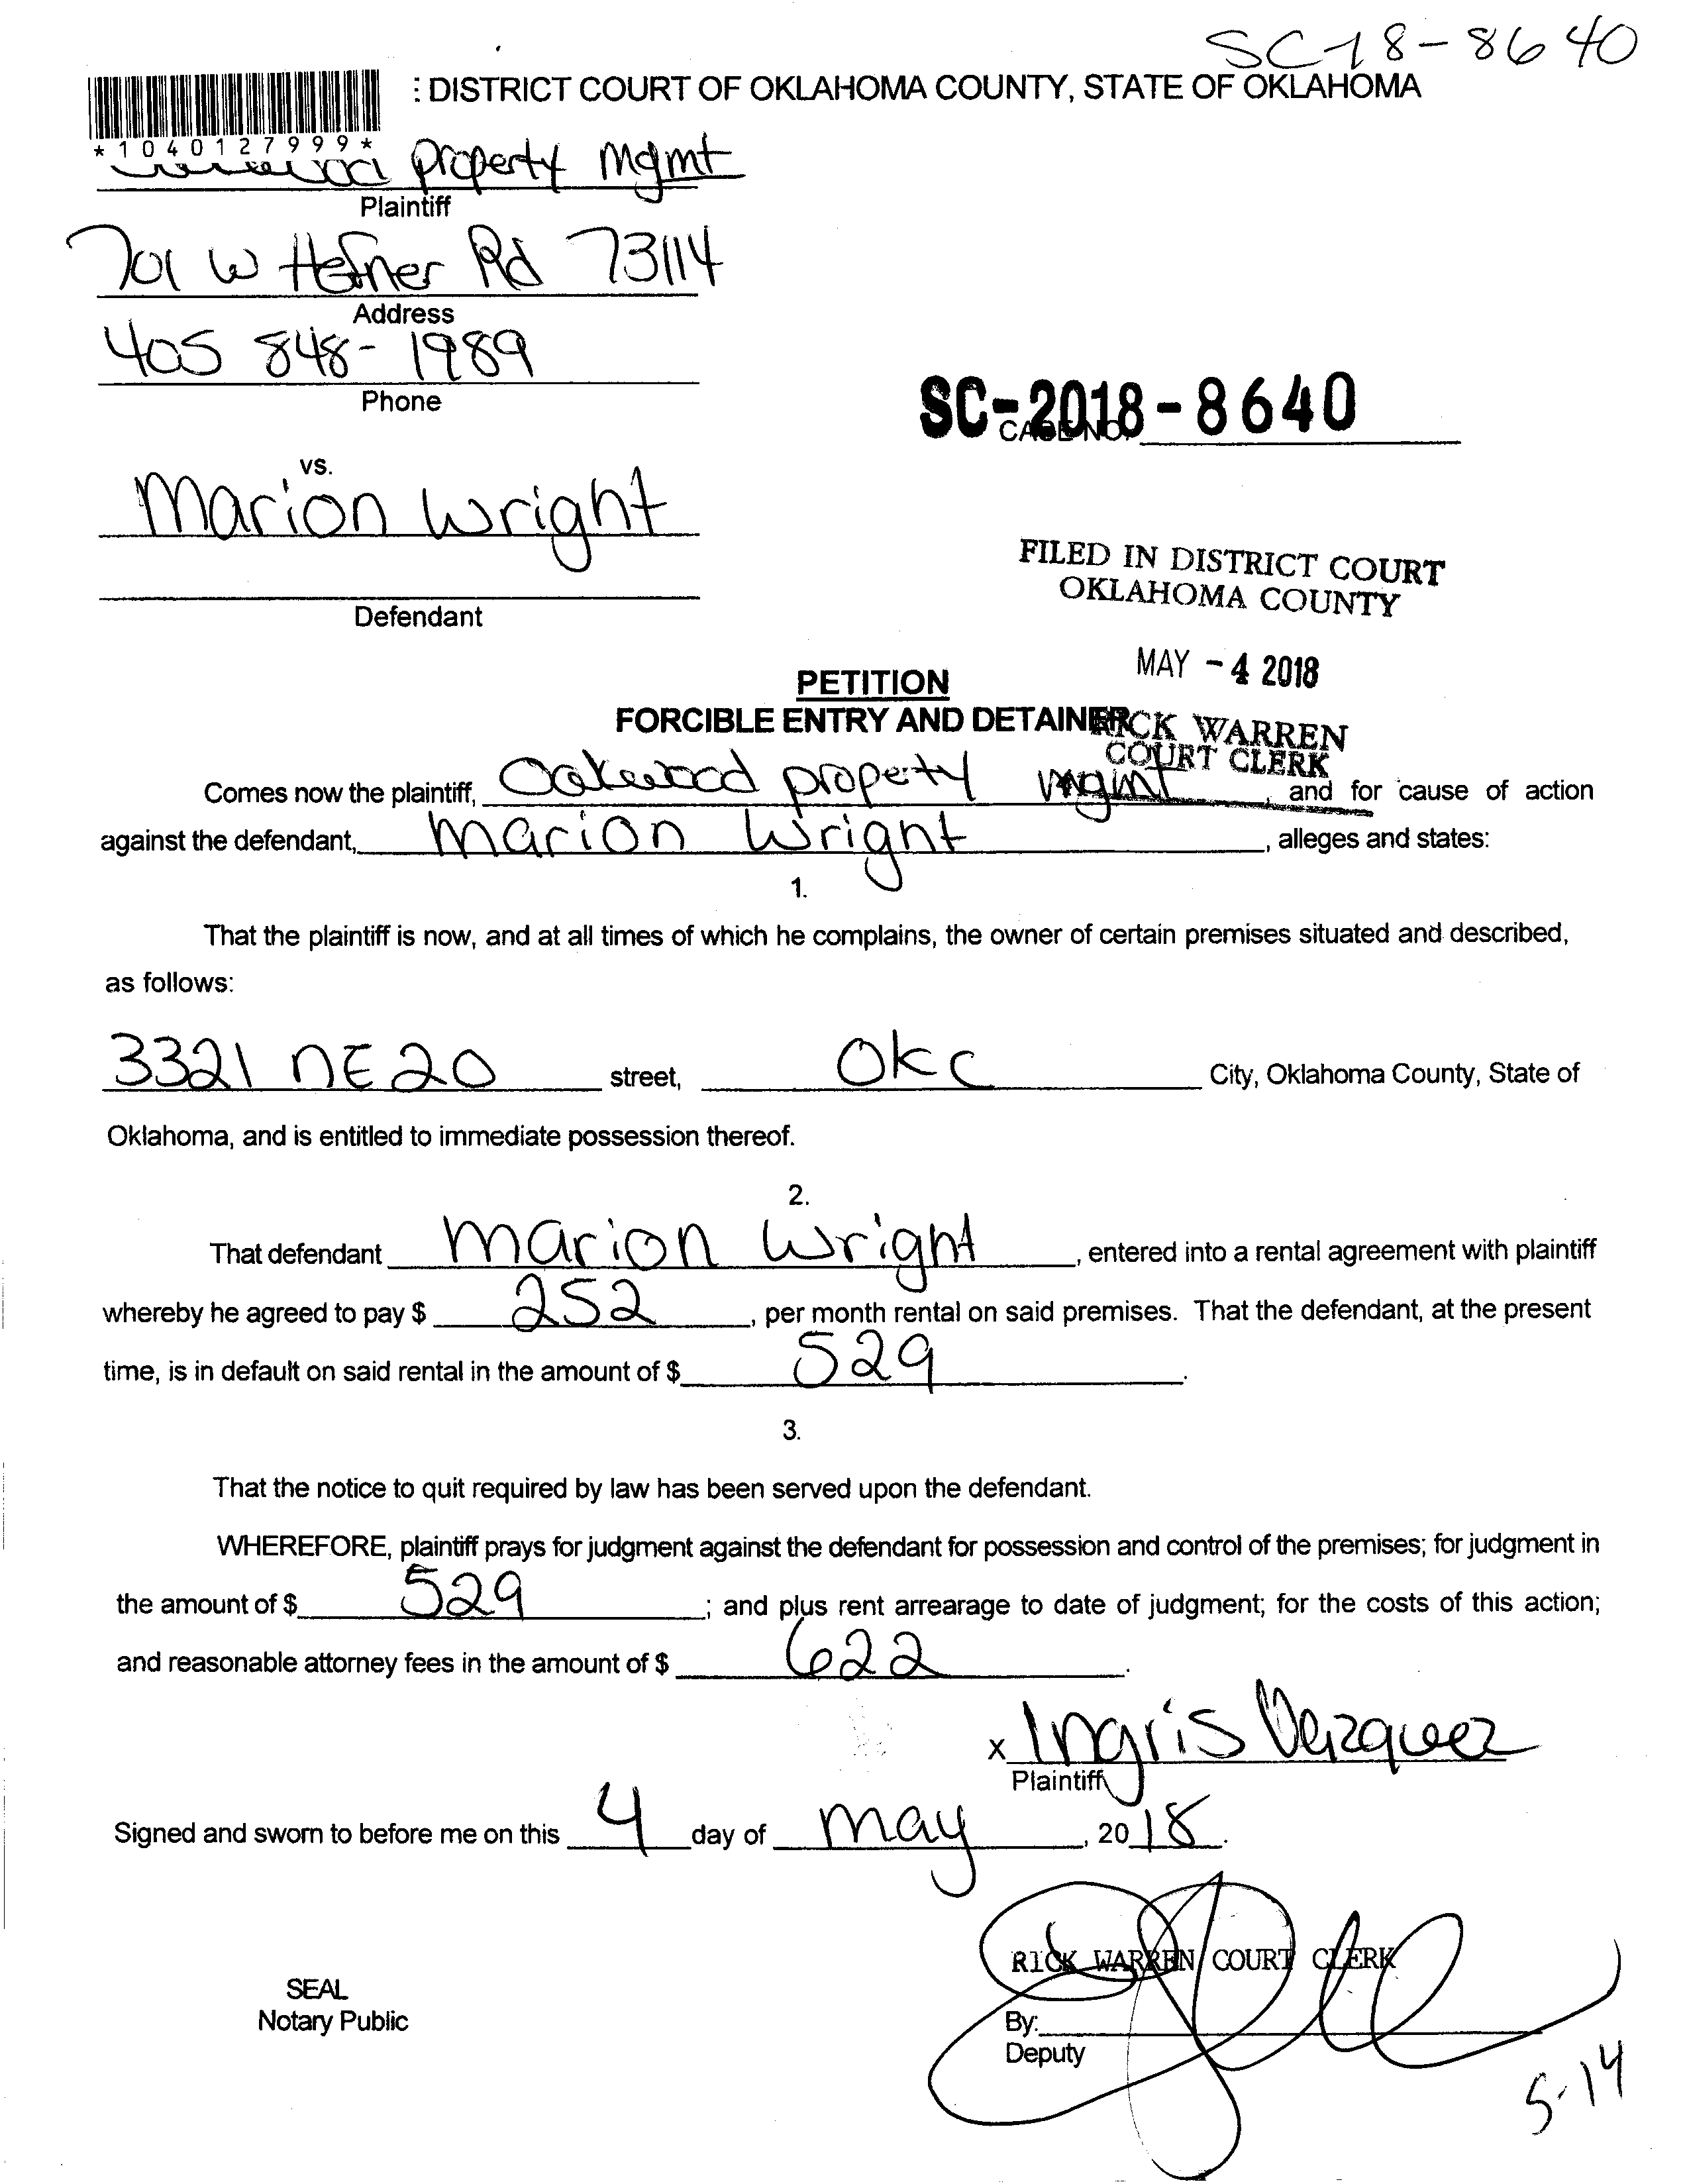 SC-18-8640
: DISTRICT COURT OF OKLAHOMA COUNTY, STATE OF OKLAHOMA
*1040127999*
property mgmt
Plaintiff
701 W Hefner Rd 73114
Address
405 848-1989
Phone
SC-2018-8640
CASE NO.
vs.
Marion Wright
Defendant
FILED IN DISTRICT COURT
OKLAHOMA COUNTY
MAY -4 2018
RICK WARREN
COURT CLERK
PETITION
FORCIBLE ENTRY AND DETAINER
Comes now the plaintiff, Oakwood property mgmt, and for cause of action
against the defendant, Marion Wright, alleges and states:
1.
That the plaintiff is now, and at all times of which he complains, the owner of certain premises situated and described,
as follows:
3321 NE 20 street, OKC City, Oklahoma County, State of
Oklahoma, and is entitled to immediate possession thereof.
2.
That defendant Marion Wright, entered into a rental agreement with plaintiff
whereby he agreed to pay $ 252, per month rental on said premises. That the defendant, at the present
time, is in default on said rental in the amount of $ 529.
3.
That the notice to quit required by law has been served upon the defendant.
WHEREFORE, plaintiff prays for judgment against the defendant for possession and control of the premises; for judgment in
the amount of $ 529; and plus rent arrearage to date of judgment; for the costs of this action;
and reasonable attorney fees in the amount of $ 622.
x Ingris Vazquez
Plaintiff
Signed and sworn to before me on this 4 day of may, 2018.
RICK WARREN COURT CLERK
SEAL
Notary Public
By:
Deputy
5-14